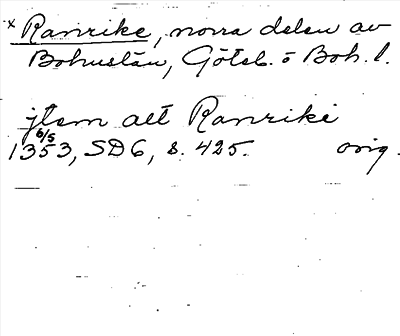 x Ranrike, norra delen av
Bohuslän, Göteb. o Boh. l.
jtem alt Ranrike
6/5
1353, SD 6, s. 425. orig.